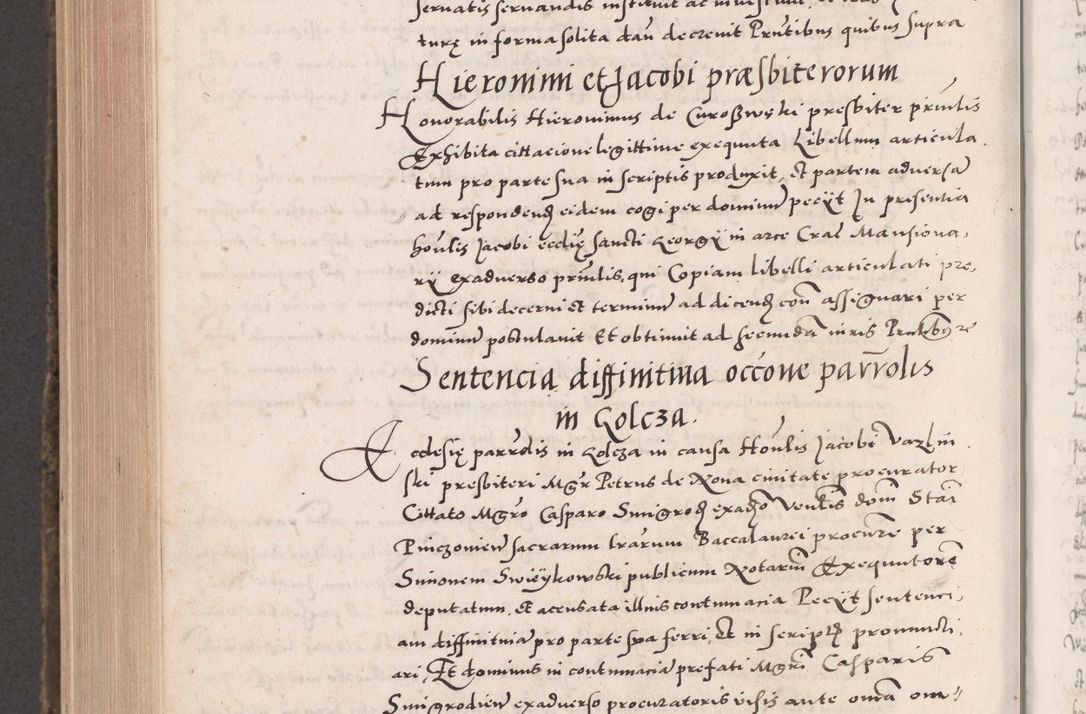 servatis servandis instituit ac
turę in forma solita dari decrevit Pntibus quibus supra
Hieronimi et Jacobi præsbiterorum
Honorabilis Hieronimus de Curoßwęki presbiter prnilis
Exhibita cittacione legittime exequuta Libellum articula
tum pro parte sua in scriptis produxit, Et partem adversā
ad respondend eidem cogi per dominum peciit In presentia
honlis Jacobi ecclię sancti Georgy in arce Cral Mansiona,
ry exadverso prnilis, qui Copiam libelli articulati pre,
dicti sibi decerni et terminum ad dicend con assignari per
dominum postulavit Et obtinuit ad secundā iuris
Sentencia diffinitiva occone parrolis
in Golcza.
Ecclesię parrolis in Golcza in causa Honlis Jacobi Vazlin
ski presbiteri Mgr Petrus de Nova civitate procurator
Cittato Mgro Casparo Smigrod exadso Venlis dom Stan
Pinczoniew sacrarum lrarum Baccalaurei procure per
Simonem Swieykowski publicum Notarium Exequutorē
deputatum, Et accusata illius contumacia Peciit sentenci,
am diffinitivā pro parte sua ferri, Et in scriptis pronuncti,
ari, Et dominus in contumacia prefati Mgri Casparis
Smigrodien exadverso procuratoris visis ante omā om